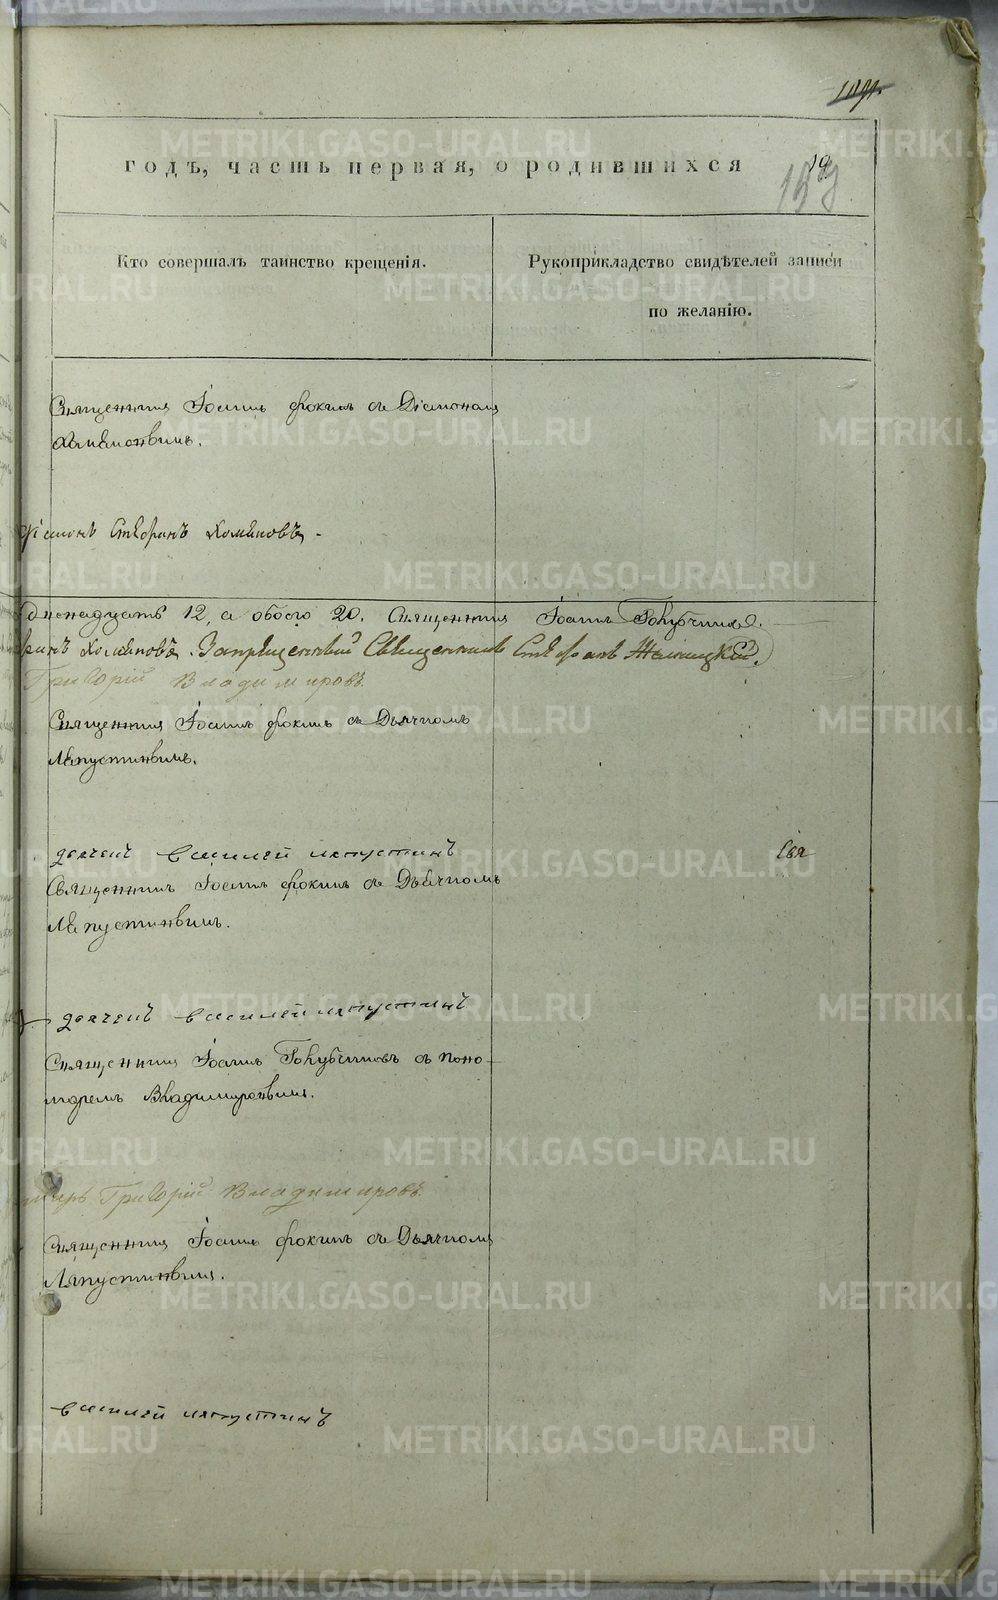 1191.
годъ, часть первая, о родившихся
159
Кто совершалъ таинство крещенія.
Рукоприкладство свидѣтелей записи
по желанію.
Священникъ Іоаннъ Фокинъ съ Діакономъ
Хомяковымъ.
Діаконъ Стефанъ Хомяковъ.
двенадцать 12, а обоего 20. Священникъ Іоаннъ Голубчиковъ.
фанъ Хомяковъ. Запрещенный Священникъ Стефанъ
Григорій Владимировъ.
Священникъ Іоаннъ Фокинъ съ Дьячкомъ
Ляпустинымъ.
дьячекъ василей ляпустинъ
Свя
Священникъ Іоаннъ Фокинъ съ Дьячкомъ
Ляпустинымъ.
дьячекъ василей ляпустинъ
Священникъ Іоаннъ Голубчиковъ съ поно-
маремъ Владимировымъ.
Григорій Владимировъ.
Священникъ Іоаннъ Фокинъ съ Дьячкомъ
Ляпустинымъ.
василей ляпустинъ
METRIKI.GASO-URAL.RU